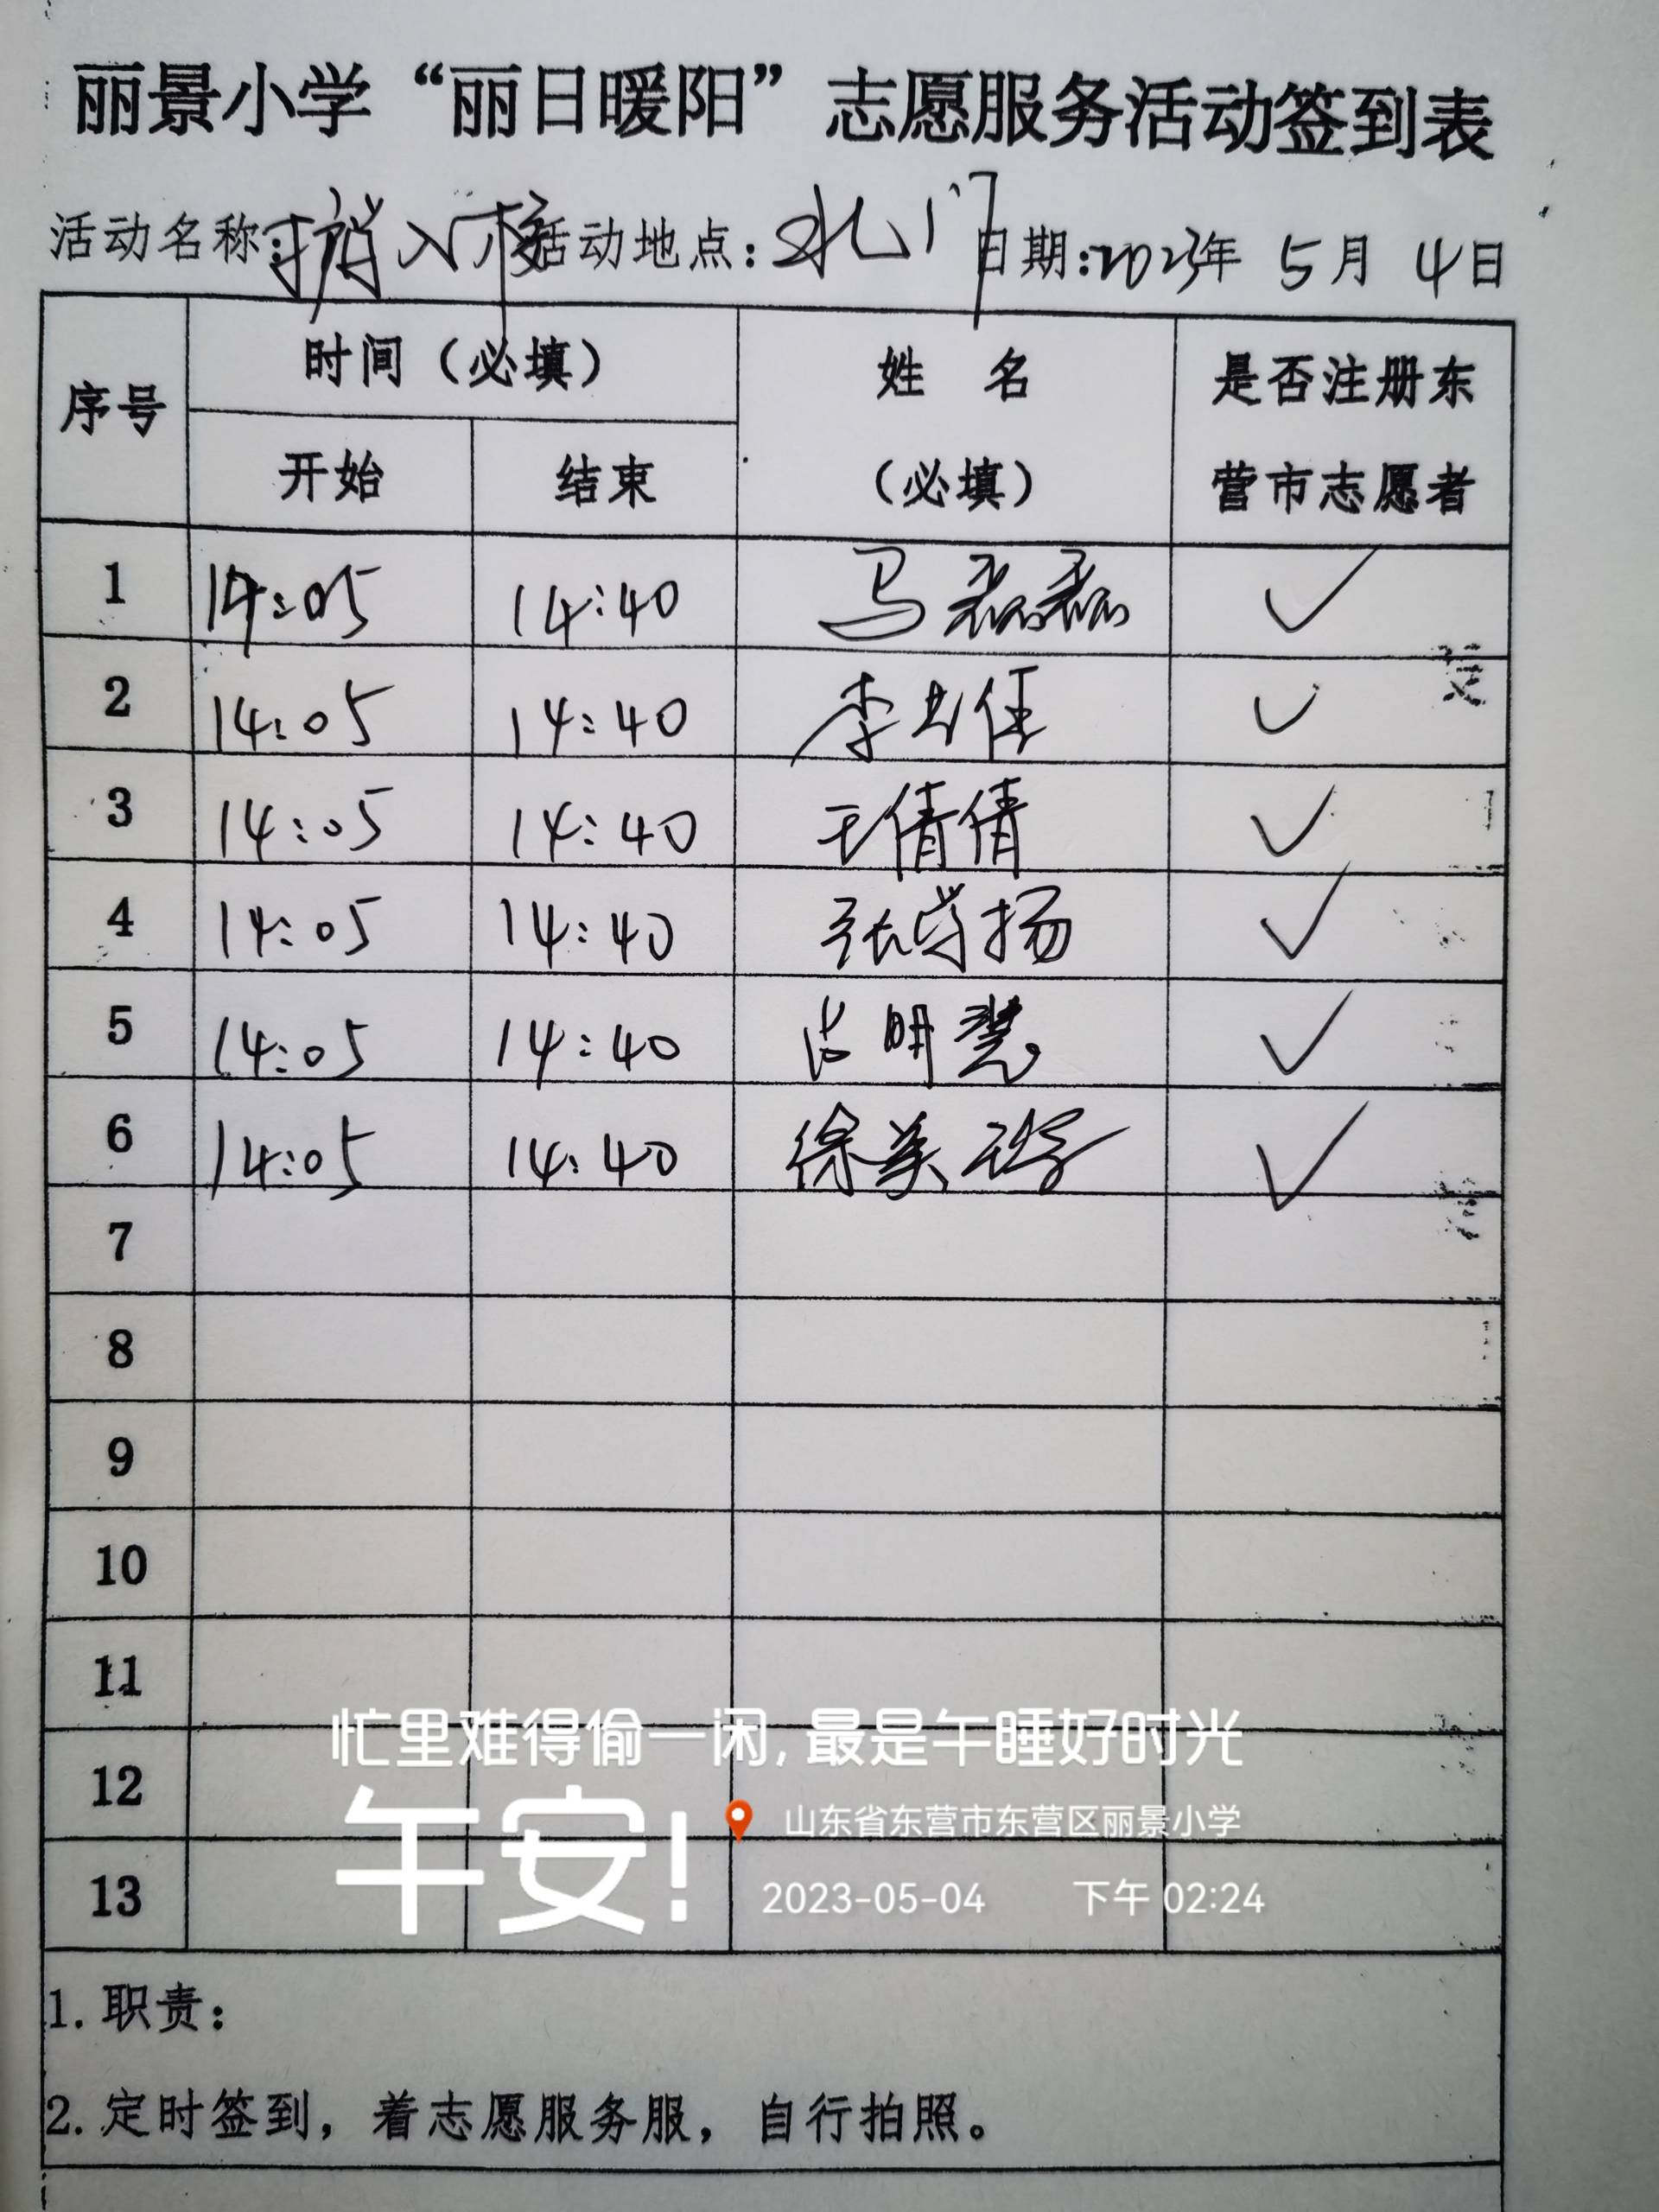 丽景小学“丽日暖阳”志愿服务活动签到表
活动名称: 入校 活动地点:北门 日期:2023年 5月 4日
序号 时间（必填） 姓 名（必填） 是否注册东营市志愿者
开始 结束
1 14:05 14:40 马磊磊 ✓
2 14:05 14:40 李 佳 ✓
3 14:05 14:40 王倩倩 ✓
4 14:05 14:40 张 扬 ✓
5 14:05 14:40 明慧 ✓
6 14:05 14:40 徐美 ✓
7
8
9
10
11
12
13
忙里难得偷一闲,最是午睡好时光
午安!
山东省东营市东营区丽景小学
2023-05-04 下午 02:24
1.职责：
2.定时签到，着志愿服务服，自行拍照。